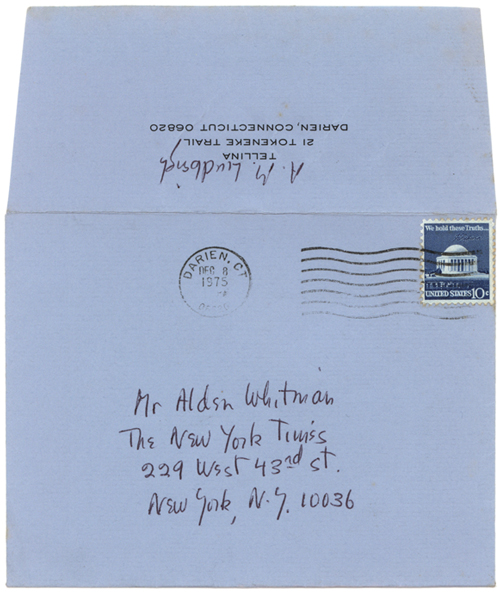 A. M. Lindbergh
TELLINA
21 TOKENEKE TRAIL
DARIEN, CONNECTICUT 06820
DARIEN, CT
DEC 8
1975
We hold these Truths...
UNITED STATES 10c
Mr Alden Whitman
The New York Times
229 West 43rd st.
New York, N.Y. 10036